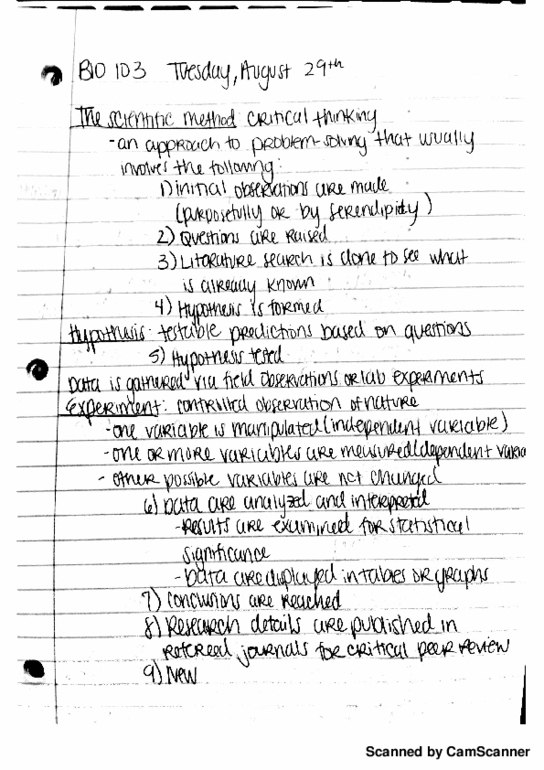 BIO 103 Tuesday, August 29th
The scientific method critical thinking
-an approach to problem-solving that usually
involves the following:
1) initial observations are made
(purposefully or by serendipity)
2) Questions are raised
3) Literature search is done to see what
is already known
4) Hypothesis is formed
Hypothesis: testable predictions based on questions
5) Hypothesis tested
Data is gathered via field observations or lab experiments
Experiment: controlled observation of nature
-one variable is manipulated (independent variable)
-one or more variables are measured (dependent varia
- other possible variables are not changed
6) Data are analyzed and interpreted
-Results are examined for statistical
significance
-Data are displayed in tables or graphs
7) Conclusions are reached
8) Research details are published in
refereed journals for critical peer review
9) New
Scanned by CamScanner